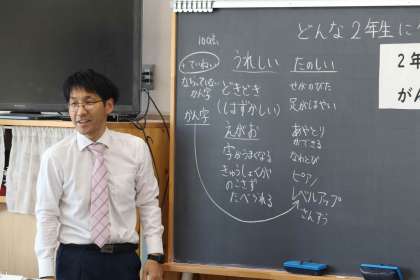 どんな2年生に
100点
ていねい
ならっていない
かん字
かん字
うれしい
どきどき
(はずかしい)
えがお
字がうまくなる
きゅうしょくが
のこさず
たべられる
たのしい
せがのびた
足がはやい
あやとり
ができる
なわとび
ピアノ
レベルアップ
さんすう
2年
がん